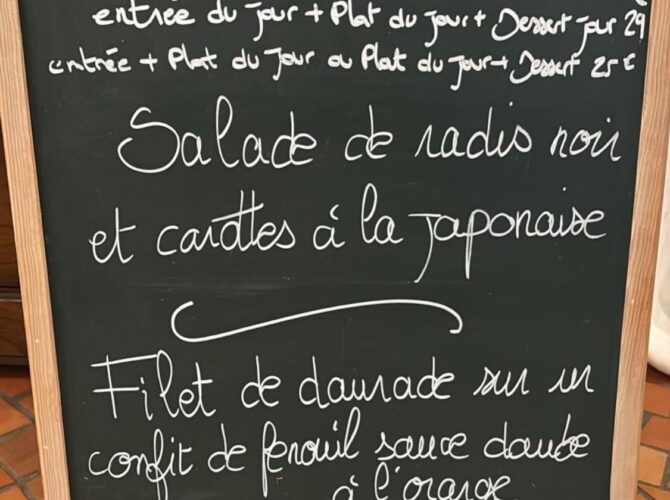 entrée du jour + Plat du jour + Dessert jour 29
entrée + Plat du Jour ou Plat du jour + Dessert 25 €
Salade de radis noir
et carottes à la japonaise
Filet de daurade sur un
confit de fenouil sauce daube
à l'orange